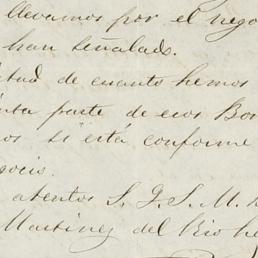 llevamos por el nego
han señalado.
de cuanto hemos
parte de esos Bos
si está conforme
atentos S. J. S. M. B
Martinez del Rio he